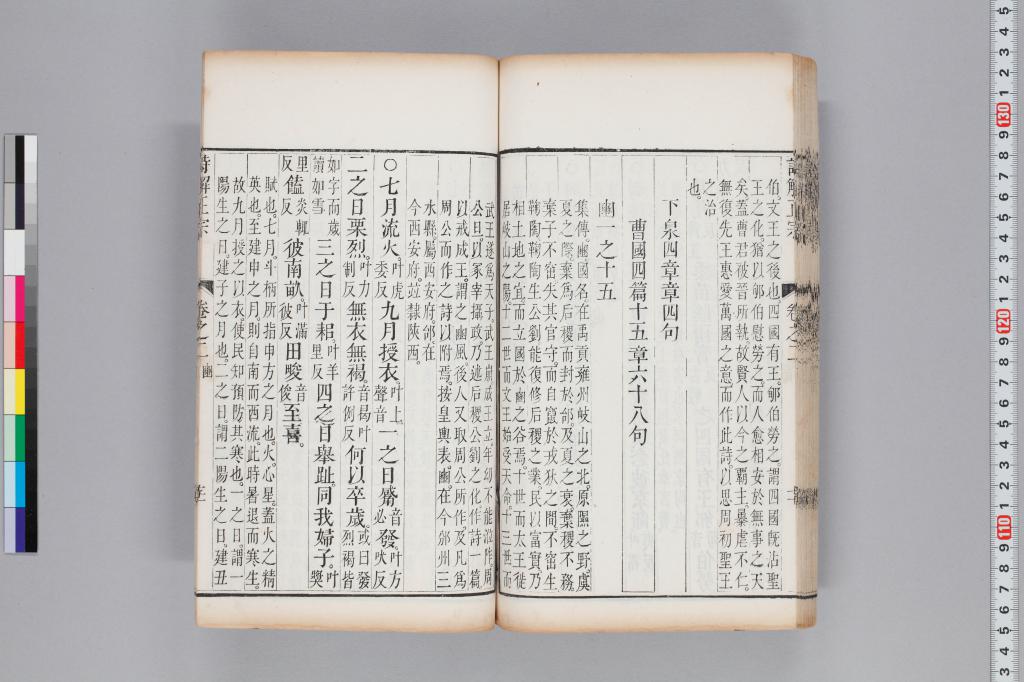 伯文王之後也四國有王郇伯勞之謂四國旣沾聖
王之化猶以郇伯慰勞之而人愈相安於無事之天
矣蓋曹君被晉所執故賢人以今之霸主暴虐不仁
無復先王惠愛萬國之意而作此詩以思周初聖王
之治
也
下泉四章章四句
曹國四篇十五章六十八句
豳一之十五
集傳豳國名在禹貢雍州岐山之北原隰之野虞
夏之際棄爲后稷而封於邰及夏之衰棄稷不務
棄子不窋失其官守而自竄於戎狄之間不窋生
鞠陶鞠陶生公劉能復修后稷之業民以富實乃
相土地之宜而立國於豳之谷焉十世而太王徙
居岐山之陽十二世而文王始受天命十三世而
武王遂爲天子武王崩成王立年幼不能涖阼周
公旦以冢宰攝政乃述后稷公劉之化作詩一篇
以戒成王謂之豳風後人又取周公所作及凡爲
周公而作之詩以附焉按皇輿表豳在今邠州三
水縣屬西安府邰在
今西安府竝隸陝西
○七月流火叶虎委反九月授衣叶上聲音一之日觱音必發叶方吠反
二之日栗烈叶力制反無衣無褐音曷叶許例反何以卒歲或曰發烈褐皆
如字而歲讀如雪三之日于耜叶羊里反四之日舉趾同我婦子叶奬
里反饁炎輒反彼南畝叶滿彼反田畯音俊至喜
賦也七月斗柄所指申方之月也火心星蓋火之精
英也至建申之月則自南而西流此時暑退而寒生
故九月授之以衣使民知預防其寒也一之日謂一
陽生之日建子之月也二之日謂二陽生之日建丑
詩解正宗
卷之二
豳